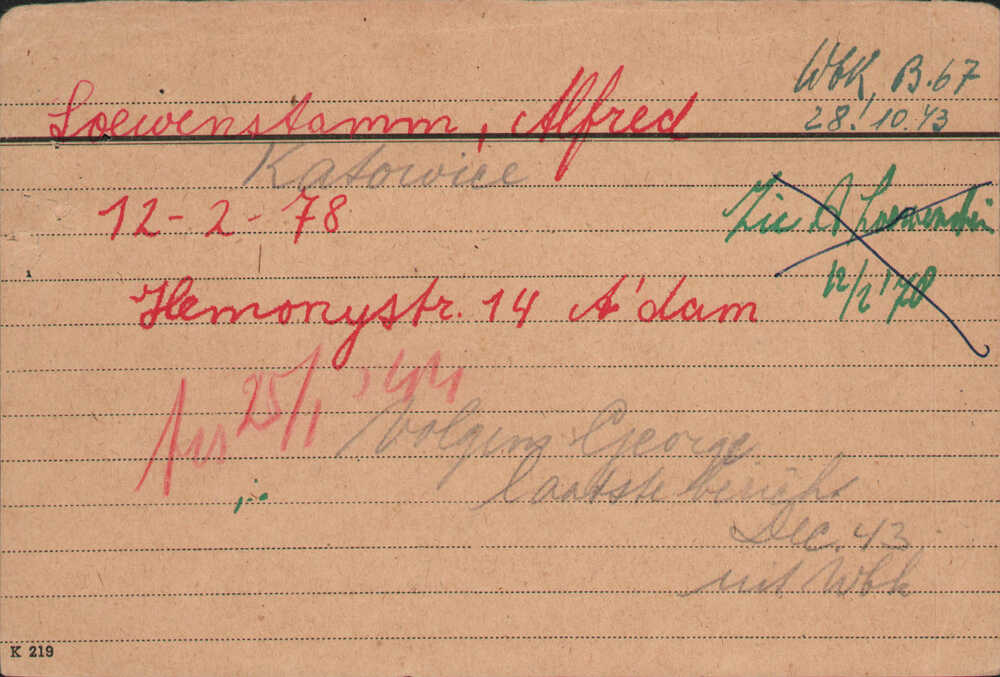 Wbk, B.67
28.10.43
Loewenstamm, Alfred
Katowice
12-2-78
Zie A Loewenstein
12/2 '78
Hemonystr. 14 A'dam
25/1 '44
Volgens George
laatste bericht
Dec. 43
uit Wbk
K 219